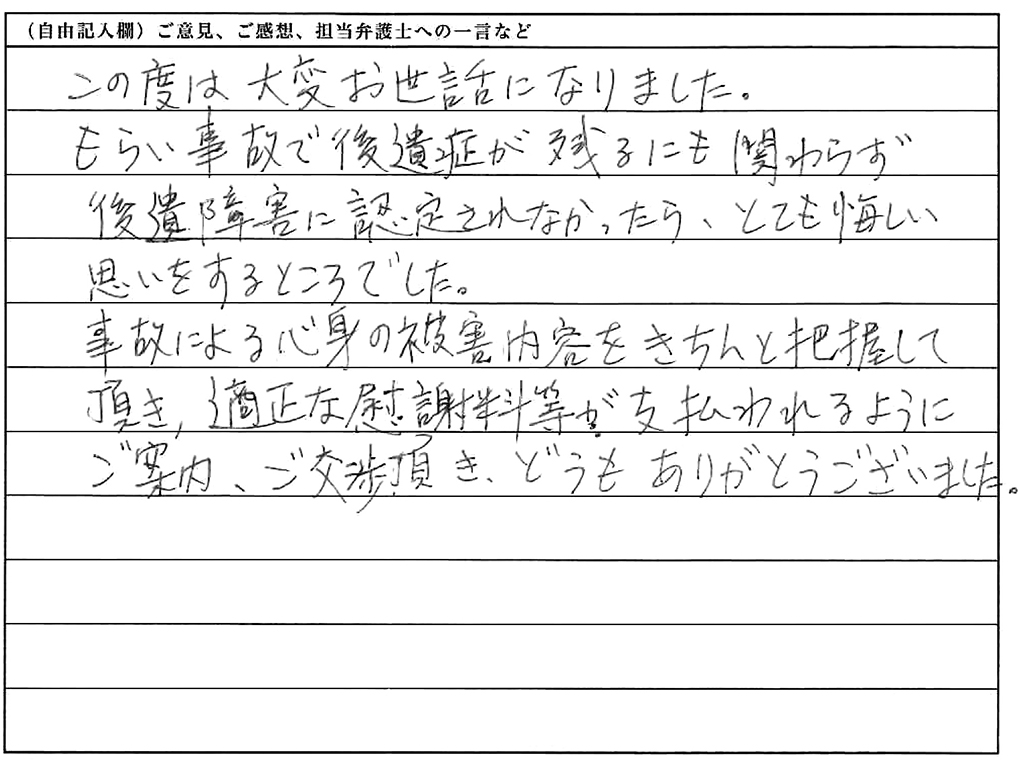 （自由記入欄）ご意見、ご感想、担当弁護士への一言など
この度は大変お世話になりました。
もらい事故で後遺症が残るにも関わらず
後遺障害に認定されなかったら、とても悔しい
思いをするところでした。
事故による心身の被害内容をきちんと把握して
頂き、適正な慰謝料等が支払われるように
ご案内、ご交渉頂き、どうもありがとうございました。